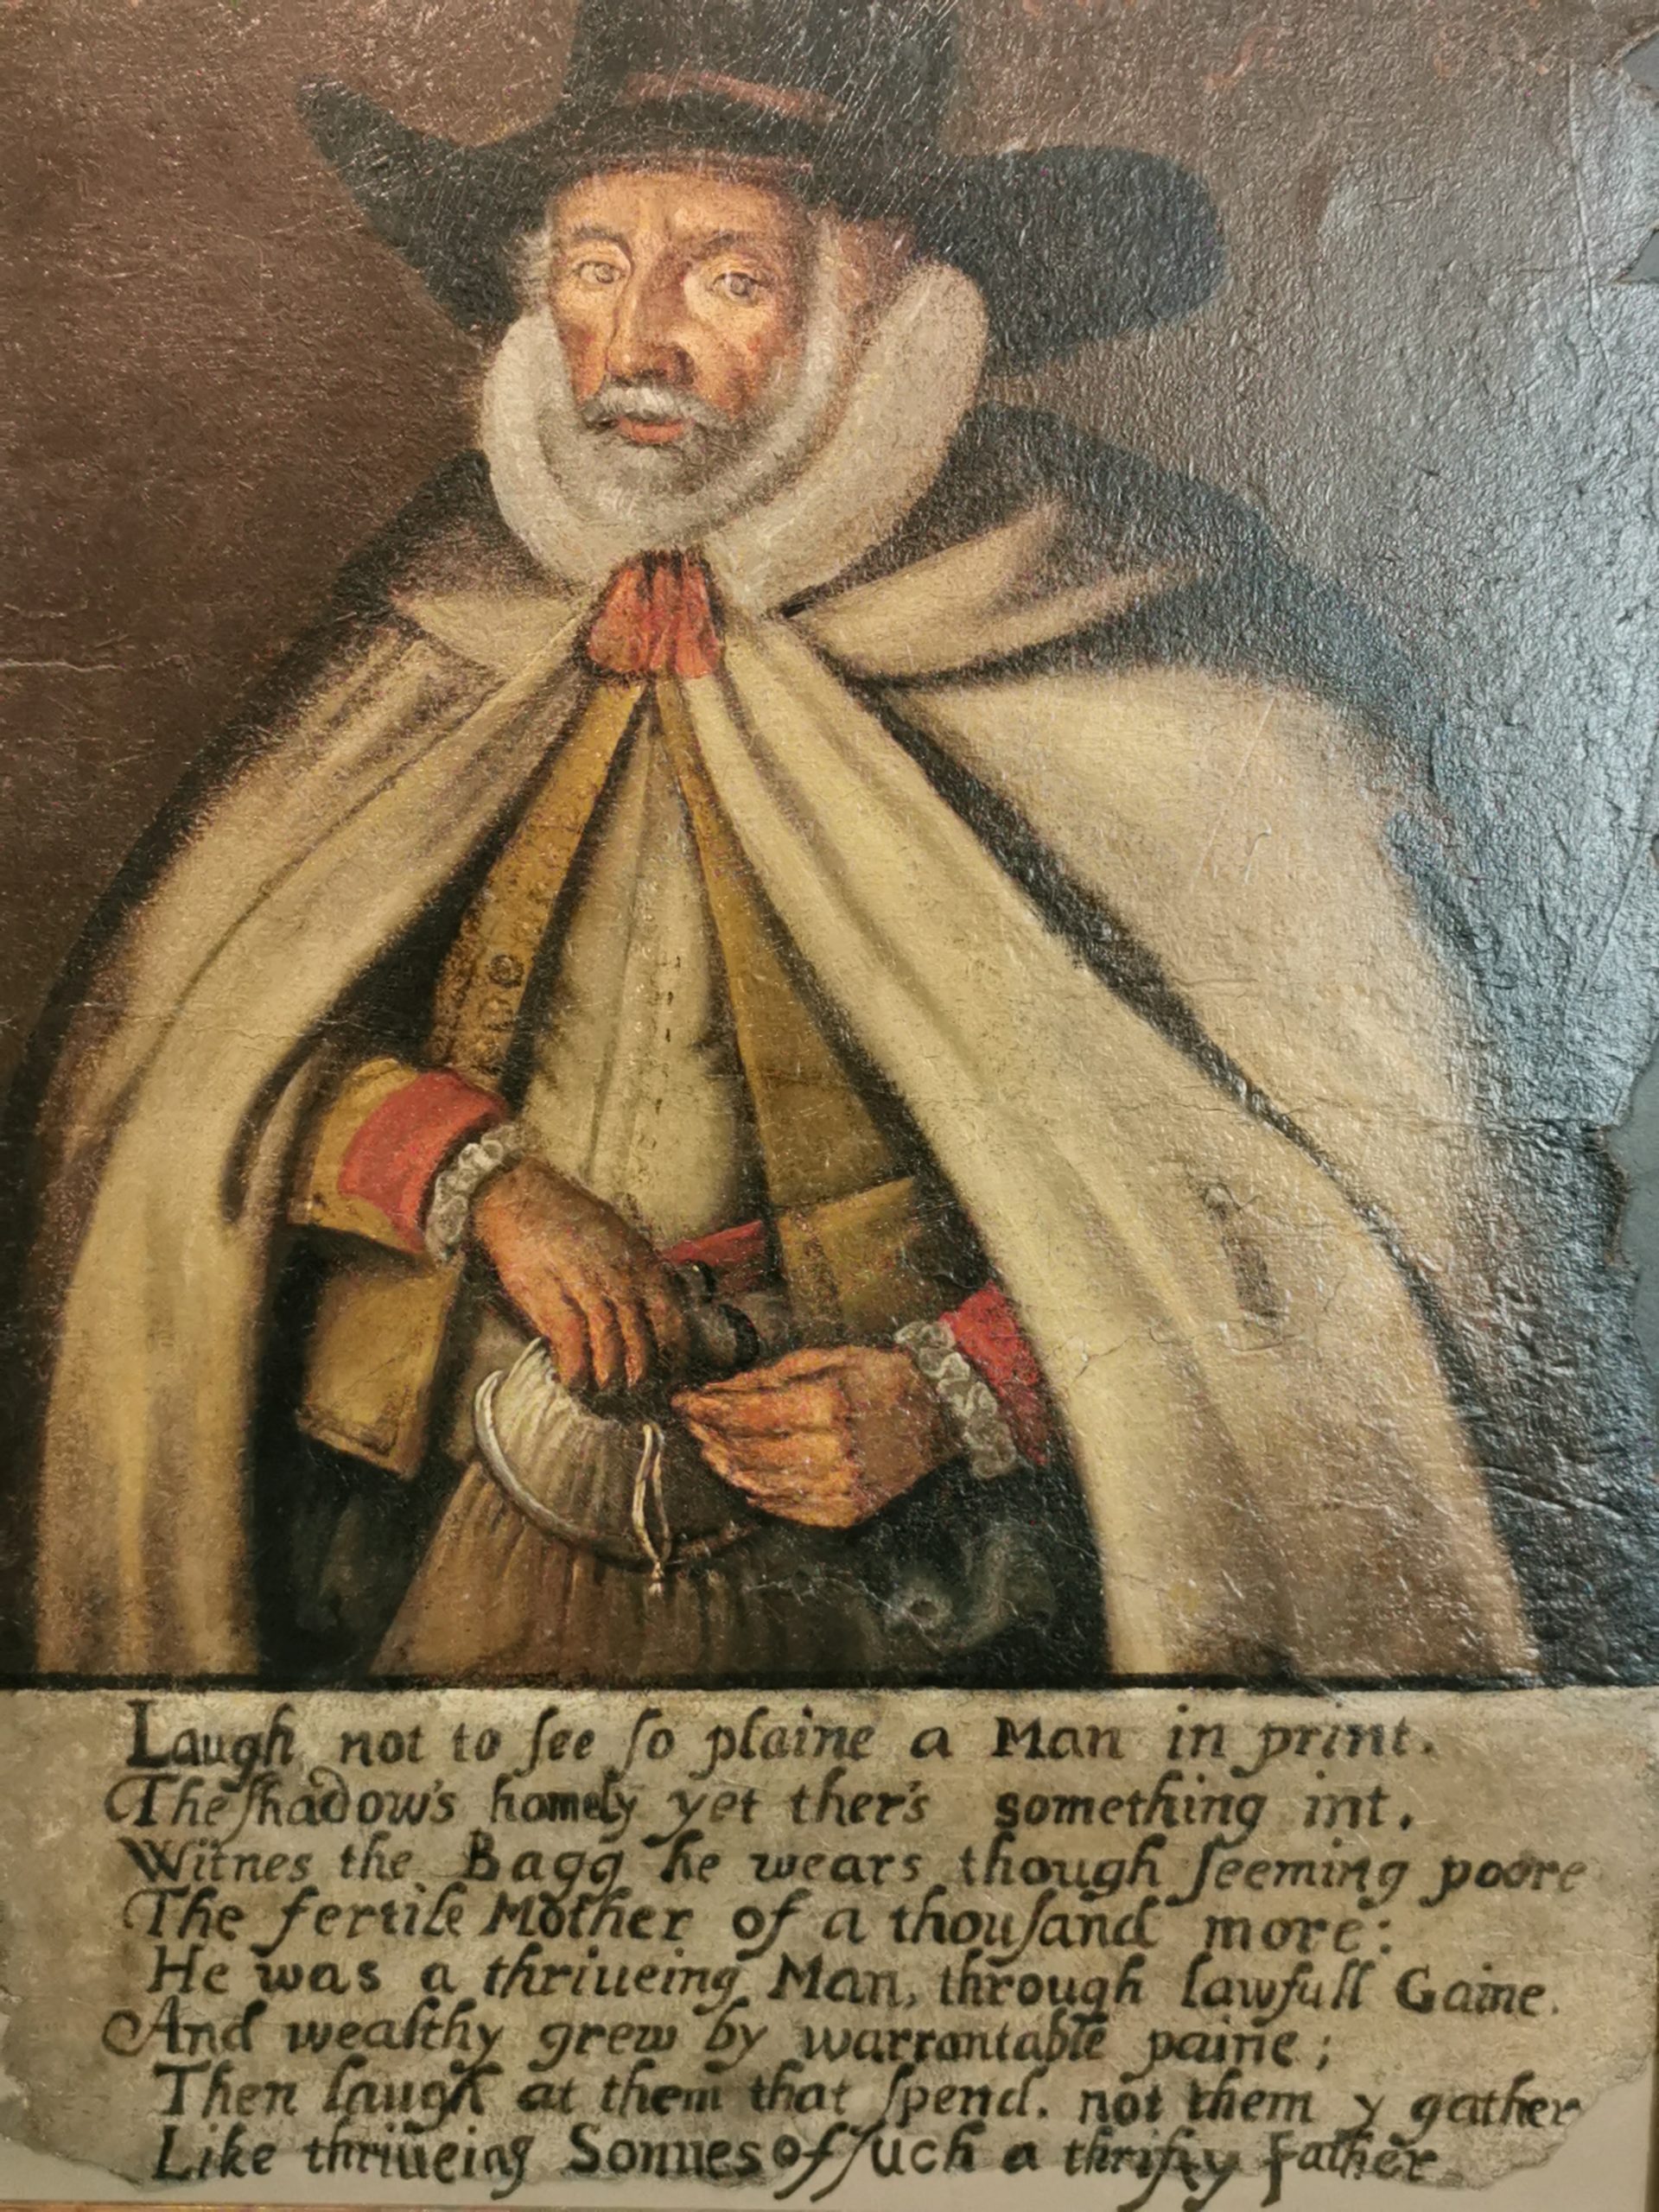 Laugh not to ſee ſo plaine a Man in print.
The ſhadow's homely yet ther's something int.
Witnes the Bagg he wears though ſeeming poore
The fertile Mother of a thouſand more:
He was a thriueing Man, through lawfull Gaine.
And wealthy grew by warrantable paine;
Then laugh at them that ſpend. not them y gather
Like thriueing Sonnes of ſuch a thrifty Father